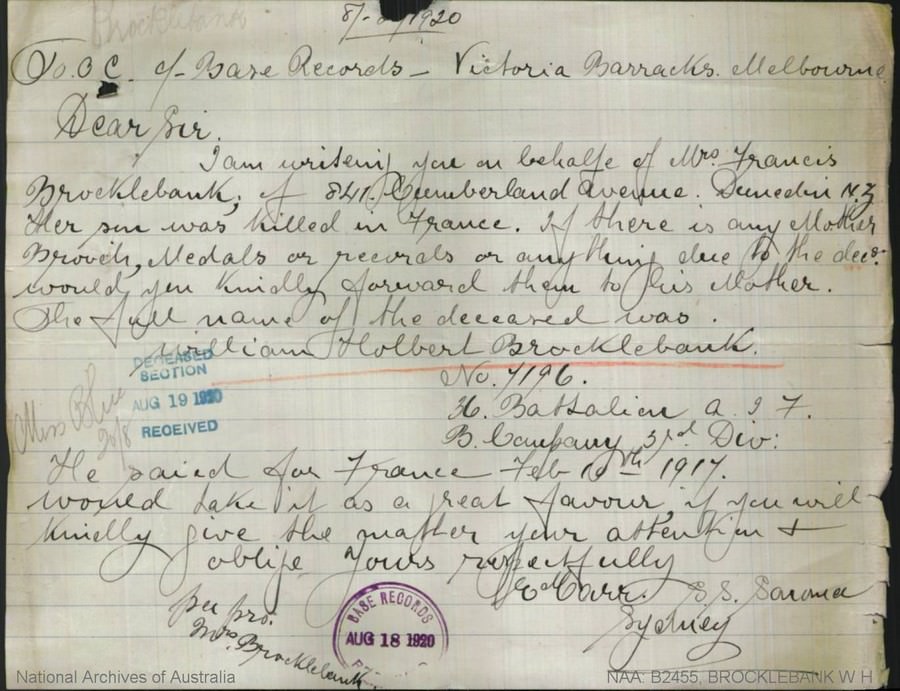 Brocklebank
8/ /1920
To. O C. c/- Base Records - Victoria Barracks. Melbourne
Dear Sir.
I am writeing you on behalfe of Mrs Francis
Brocklebank, of 841. Cumberland Avenue. Dunedin N.Z
Her son was killed in France. If there is any Mother
Brooch, Medals or records or anything due to the dec.
would you kindly forward them to his Mother.
The full name of the deceased was.
William Holbert Brocklebank.
DECEASED
SECTION
AUG 19 1920
RECEIVED
Miss
20/8
No. 7196.
36. Battalion A. I F.
B. Company 3rd Div:
He saied for France Feb 10th 1917.
would take it as a great favour, if you will
kindly give the matter your attention &
oblige Yours respectfully
Ed Carr. S.S.
Sydney
per pro.
Mrs Brocklebank
BASE RECORDS
AUG 18 1920
National Archives of Australia
NAA: B2455, BROCKLEBANK W H